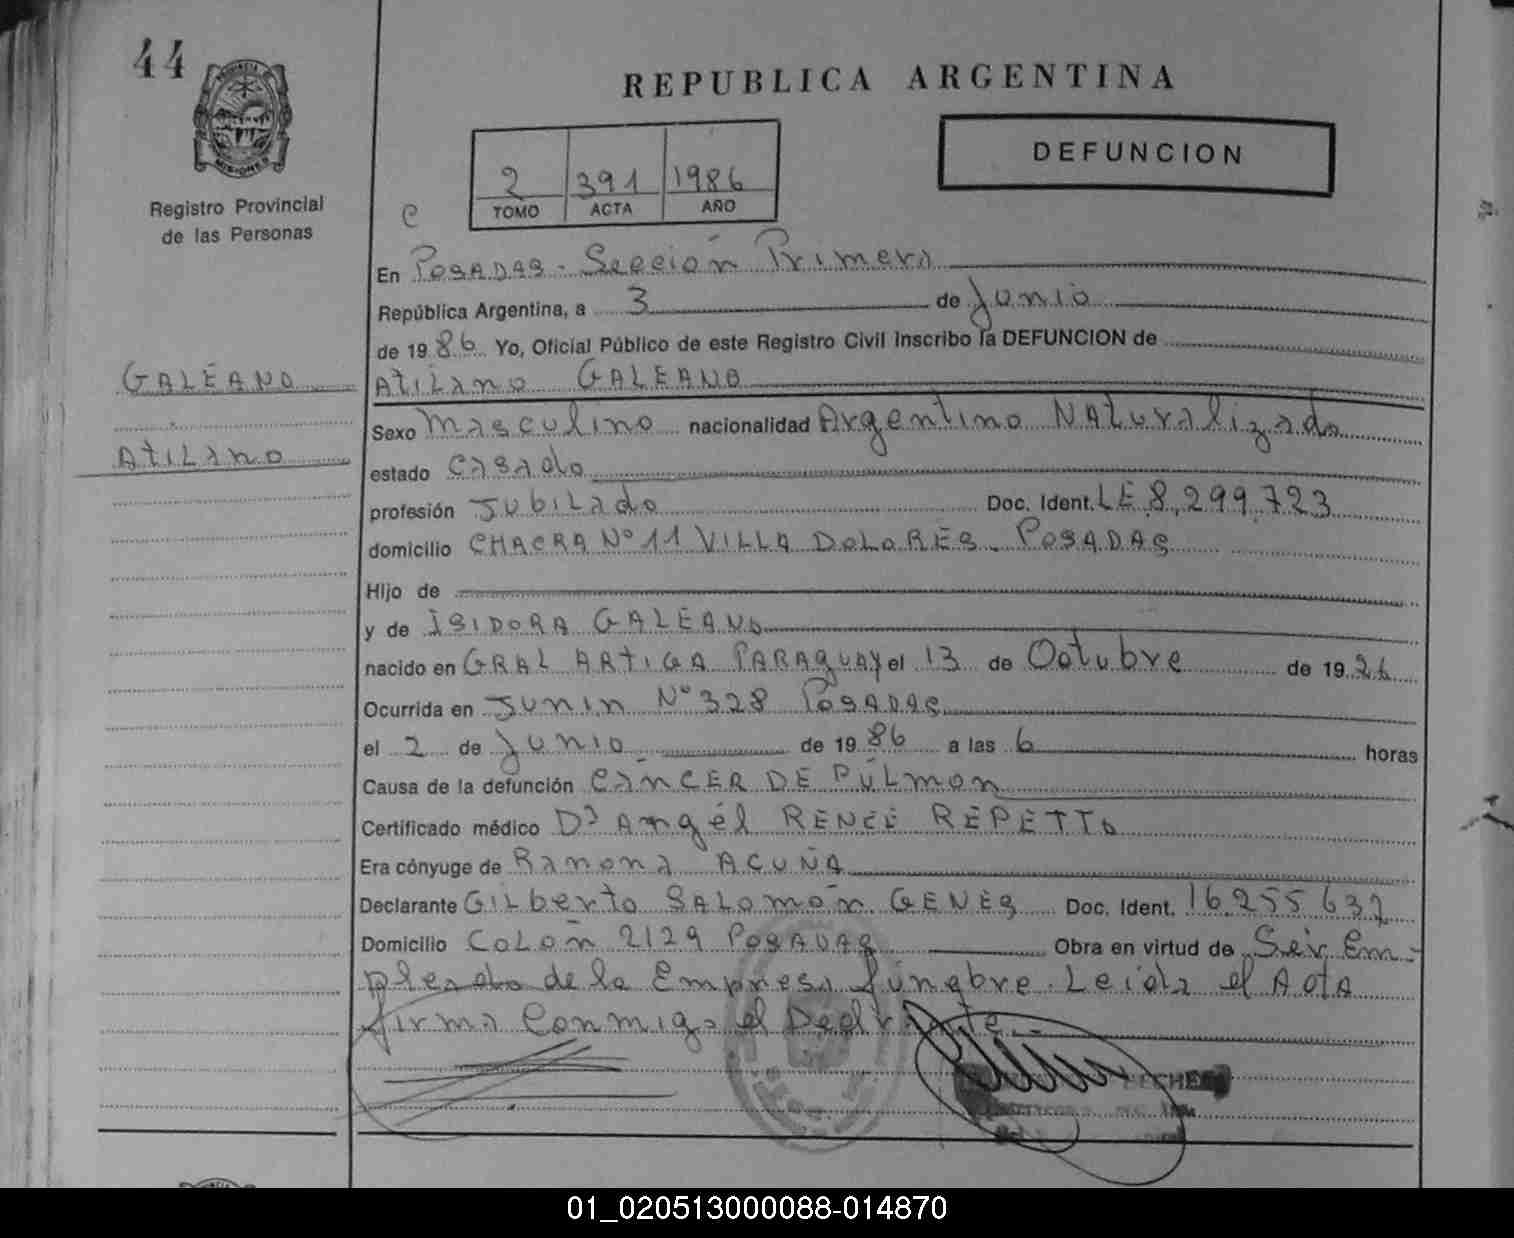 44
REPUBLICA ARGENTINA
PROVINCIA DE
MISIONES
Registro Provincial
de las Personas
2 391 1986
TOMO ACTA AÑO
DEFUNCION
C
En POSADAS - Sección Primera
República Argentina, a 3 de Junio
de 1986 Yo, Oficial Público de este Registro Civil Inscribo la DEFUNCION de
GALEANO
ATILANO
Atilano GALEANO
Sexo Masculino nacionalidad Argentino Naturalizado
estado Casado
profesión Jubilado Doc. Ident. LE 8.299.723
domicilio CHACRA Nº 11 VILLA DOLORES. POSADAS
Hijo de
y de ISIDORA GALEANO
nacido en GRAL ARTIGA PARAGUAY el 13 de Octubre de 1926
Ocurrida en JUNIN Nº 328 POSADAS
el 2 de Junio de 1986 a las 6 horas
Causa de la defunción CÁNCER DE PÚLMON
Certificado médico Dr Angél RENEÉ REPETTO
Era cónyuge de Ramona ACUÑA
Declarante Gilberto SALOMÓN GENES Doc. Ident. 16.255.632
Domicilio COLON 2129 POSADAS Obra en virtud de Ser Em-
pleado de la Empresa fúngbre. Leida el Acta
firma Conmigo el Declarante.-
01_020513000088-014870